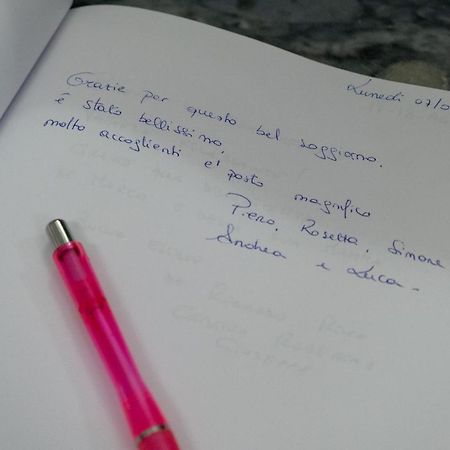 Lunedì 07/0
Grazie per questo bel soggiorno.
é stato bellissimo.
molto accoglienti e' posto magnifico
Piero, Rosetta, Simone
Andrea e Luca.